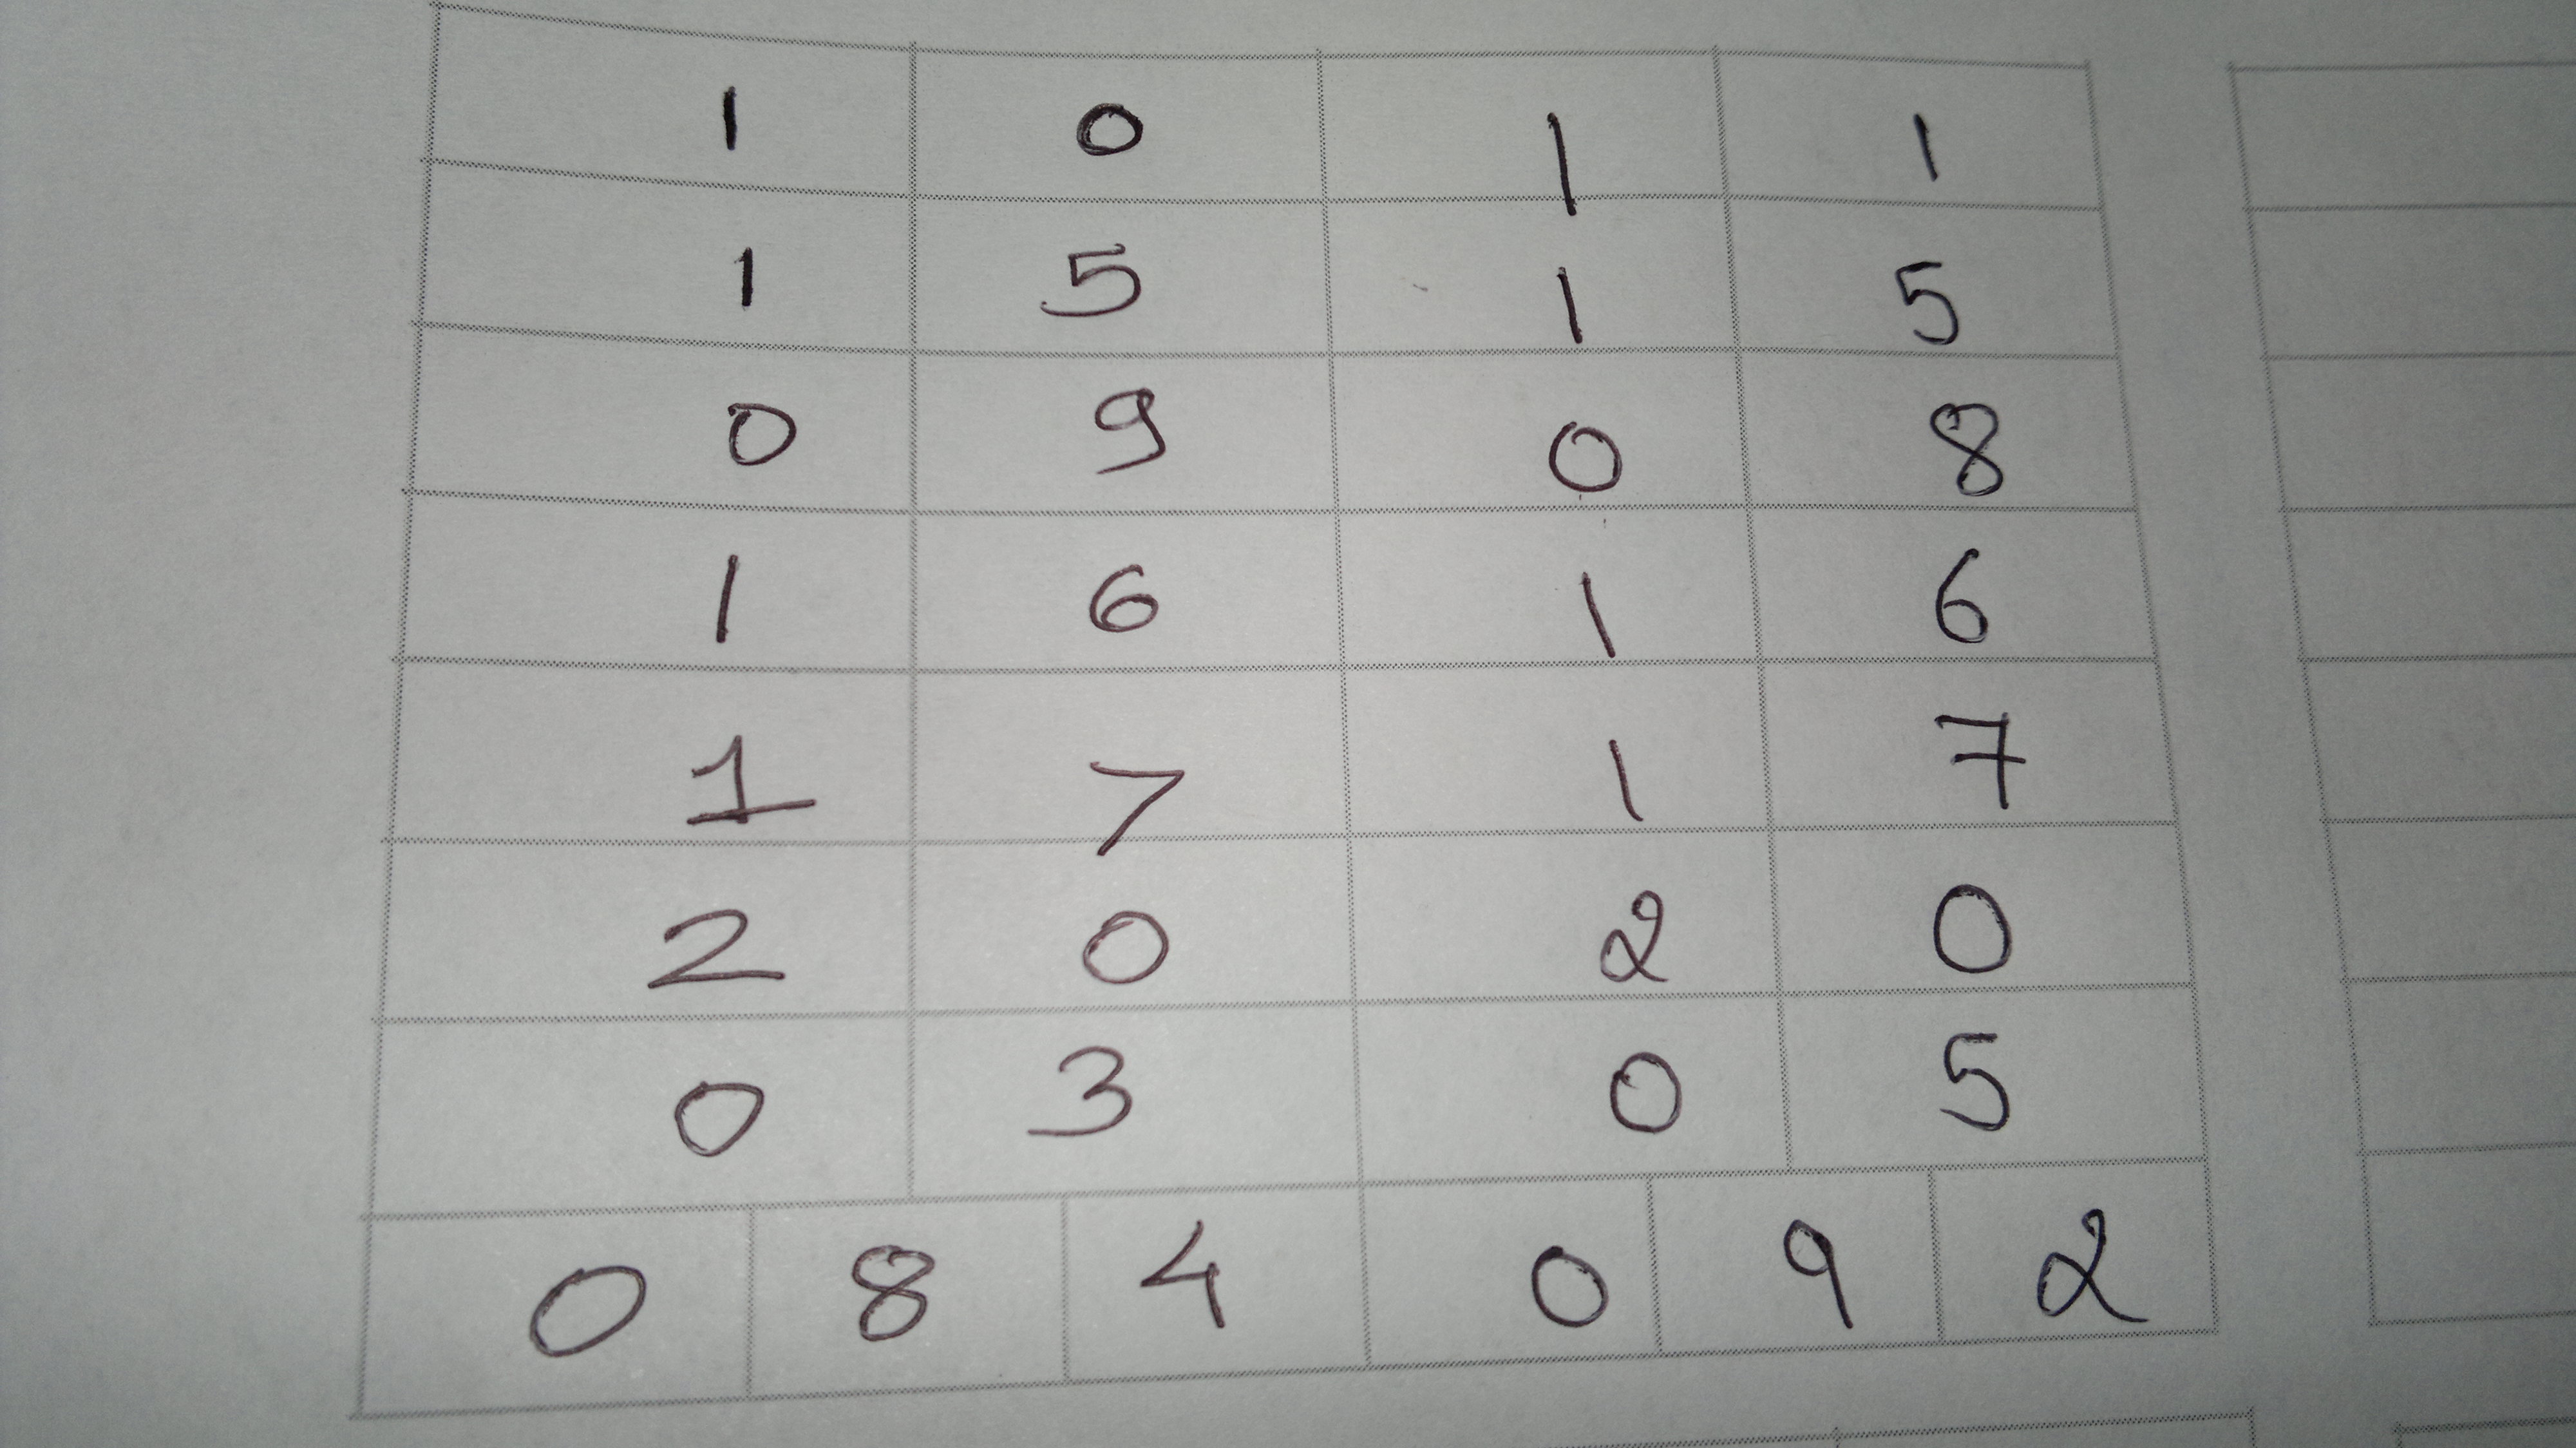 1 0 1 1
1 5 1 5
0 9 0 8
1 6 1 6
1 7 1 7
2 0 2 0
0 3 0 5
0 8 4 0 9 2